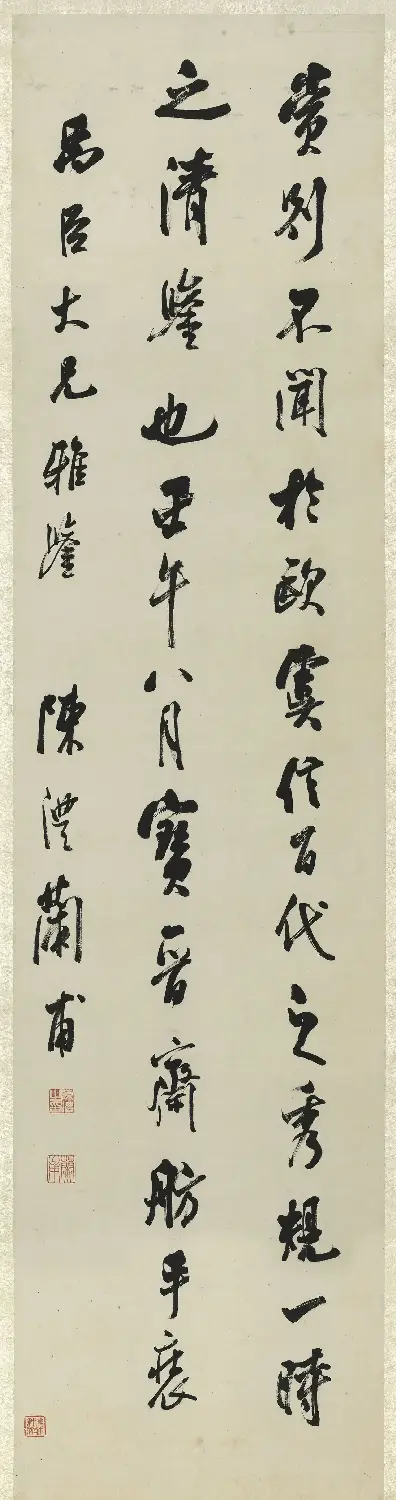 賞則不聞於歐虞信百代之秀規一時
之清鑒也壬午八月寶晉齋舫手裝
臣大兄雅鑒 陳澧蘭甫